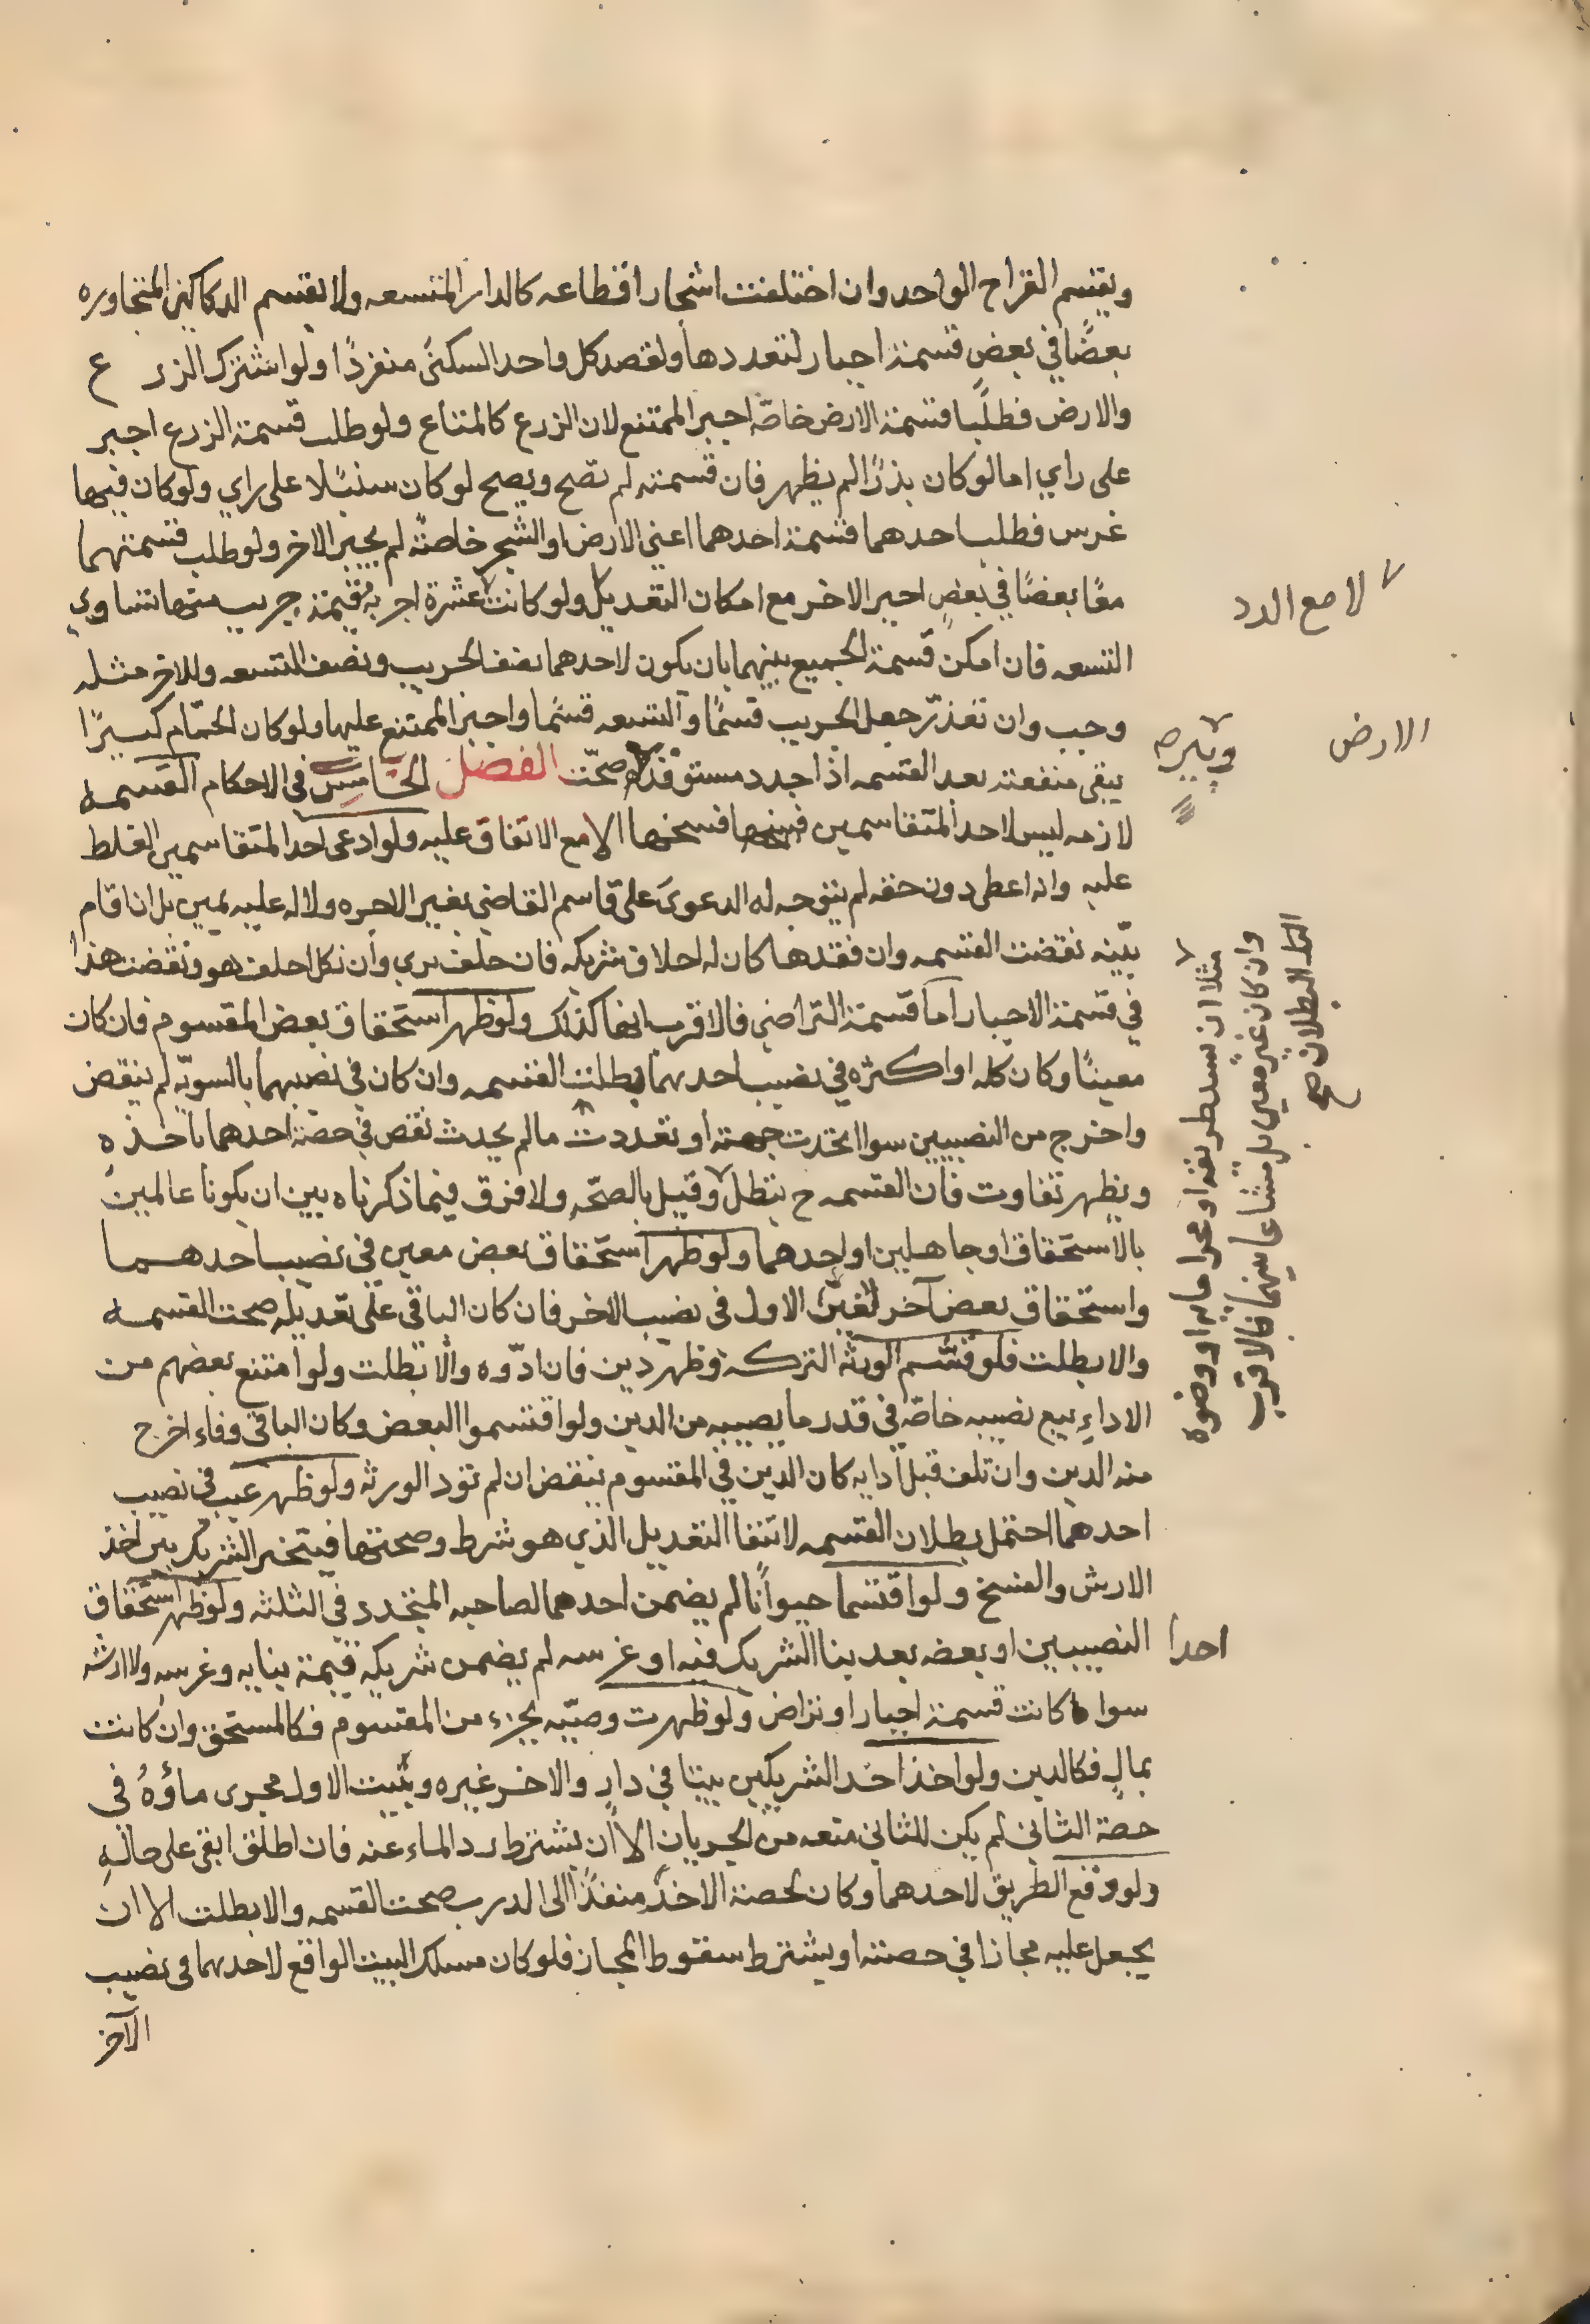 ويقسم القراح الواحد وان اختلفت اشجار اقطاعه كالدار المتسعه ولا يقسم الدكاكين المتجاوره
بعضًا في بعض قسمة اجبار لتعددها ولقصد كل واحد السكنى منفردًا ولو اشترك الزرع
والارض فطلبا قسمة الارض خاصّة اجبر الممتنع لان الزرع كالمتاع ولو طلب قسمة الزرع اجبر
على راي اما لو كان بذرًا لم يظهر فان قسمته لم تصح ويصح لو كان سنبلا على راي ولو كان فيها
غرس فطلب احدهما قسمة احدهما اعني الارض او الشجر خاصّة لم يجبر الاخر ولو طلب قسمتهما
معًا بعضًا في بعضٍ اجبر الاخر مع امكان التعديل ولو كانت عشرة اجربة قيمة جريب منها تساوي
لا مع الرد
التسعه فان امكن قسمة الجميع بينهما بان يكون لاحدهما نصف الجريب ونصف التسعه وللاخر مثله
وجب وان تعذّر جعل الجريب قسمًا والتسعه قسمًا واجبر الممتنع عليها ولو كان الحمّام كبيرًا
الارض
يبقى منفعته بعد القسمه اذا جدد مستوقده صحّت الفصل الخامس في الاحكام القسمه
وبيره
لازمه ليس لاحد المتقاسمين فسخها الا مع الاتفاق عليه ولو ادعى احد المتقاسمين الغلط
عليه وانه اعطى دون حقه لم يتوجه له الدعوى على قاسم القاضي بغير الاجره ولا له عليه يمين بل ان اقام
بيّنه نقضت القسمه وان فقدها كان له احلاف شريكه فان حلف بري وان نكل احلف هو ونقضت هذا
في قسمة الاجبار اما قسمة التراضي فالاقرب انها كذلك ولو ظهر استحقاق بعض المقسوم فان كان
معينًا وكان كله او اكثره في نصيب احدهما بطلت القسمه وان كان في نصيبهما بالسويّه لم ينقض
واخرج من النصيبين سوا اتحدت جهته او تعددت ما لم يحدث نقص في حصة احدهما باخذه
ويظهر تفاوت فان القسمه ح تبطل وقيل بالصحّه ولا فرق فيما ذكرناه بين ان يكونا عالمين
مثلا ان يسد طريقه او مجرا مايه او وضوه
وان كان غير معين بل مشاعا بينهما فالاقرب
البطلان صح
بالاستحقاق او جاهلين او احدهما ولو ظهر استحقاق بعض معين في نصيب احدهما
واستحقاق بعض آخر لغير الاول في نصيب الاخر فان كان الباقي على تعديله صحت القسمه
والا بطلت فلو قسّم الورثه التركه وظهر دين فان ادّوه والا بطلت ولو امتنع بعضهم من
الاداء بيع نصيبه خاصّة في قدر ما يصيبه من الدين ولو اقتسموا البعض وكان الباقي وفاء اخرج
منه الدين وان تلف قبل ادايه كان الدين في المقسوم ينقض ان لم تؤد الورثه ولو ظهر عيب في نصيب
احدهما احتمل بطلان القسمه لانتفا التعديل الذي هو شرط وصحتها فيتخير الشريك بين اخذ
الارش والفسخ ولو اقتسما حيوانًا لم يضمن احدهما لصاحبه المتجدد في الثلثه ولو ظهر استحقاق
احدا
النصيبين او بعضه بعد بنا الشريك فيه او غرسه لم يضمن شريكه قيمة بنايه وغرسه ولا ارشه
سواء كانت قسمة اجبار او تراض ولو ظهرت وصيّه بجزء من المقسوم فكالمستحق وان كانت
بمالٍ فكالدين ولو اخذ احد الشريكين بيتا في دار والاخر غيره وبيت الاول مجرى ماؤهُ في
حصة الثاني لم يكن للثاني منعه من الجريان الا ان يشترط رد الماء عنه فان اطلق ابقى على حالهِ
ولو وقع الطريق لاحدهما وكان لحصة الاخر منفذًا الى الدرب صحت القسمه والا بطلت الا ان
يجعل عليه مجازا في حصته او يشترط سقوط المجاز فلو كان مسلك البيت الواقع لاحدهما في نصيب
الآخر